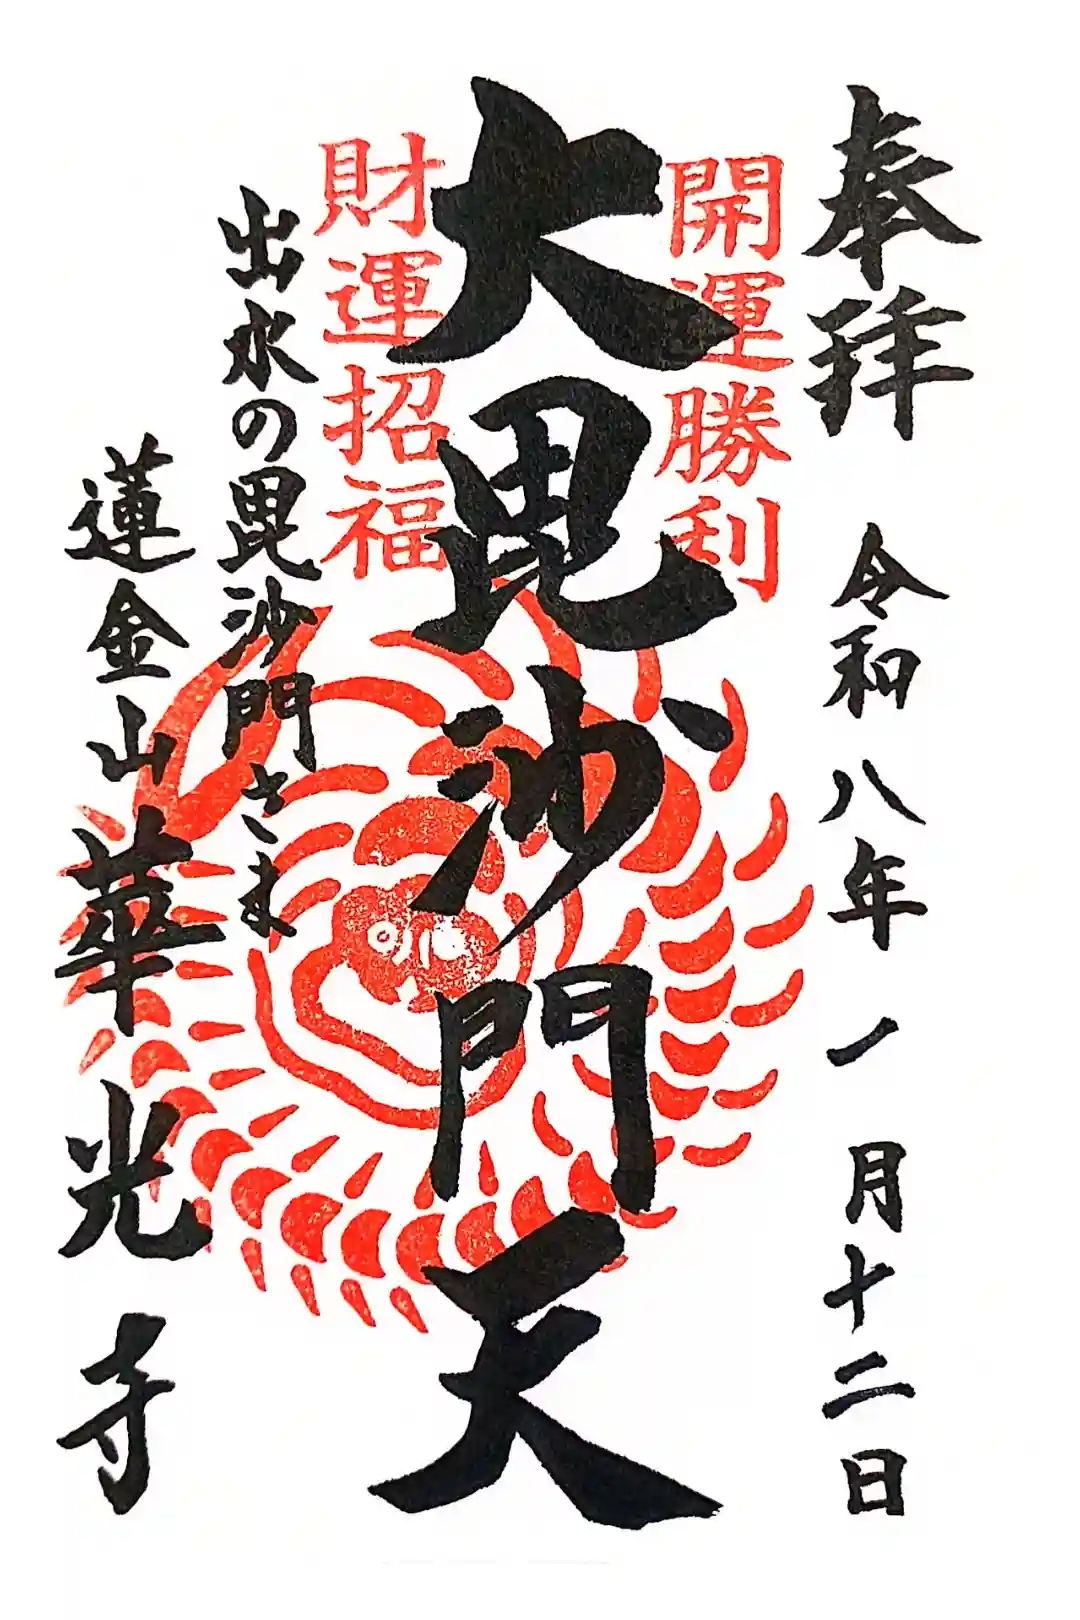 奉拝 令和八年一月十二日
開運勝利
大毘沙門天
財運招福
出水の毘沙門さま
蓮金山華光寺